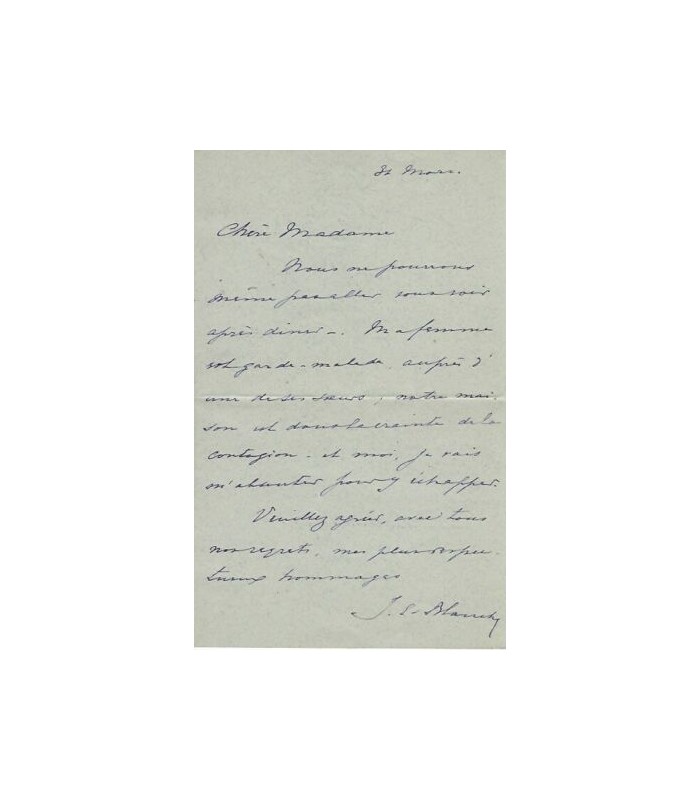 31 Mars.
Chère Madame
Nous ne pourrons
même pas aller vous voir
après diner -. Ma femme
est garde-malade auprès d'
une de ses sœurs ; notre mai-
son est dans la crainte de la
contagion - et moi, je vais
m'absenter pour y échapper.
Veuillez agréer, avec tous
nos regrets, mes plus respec-
tueux hommages
J. E. Blanche